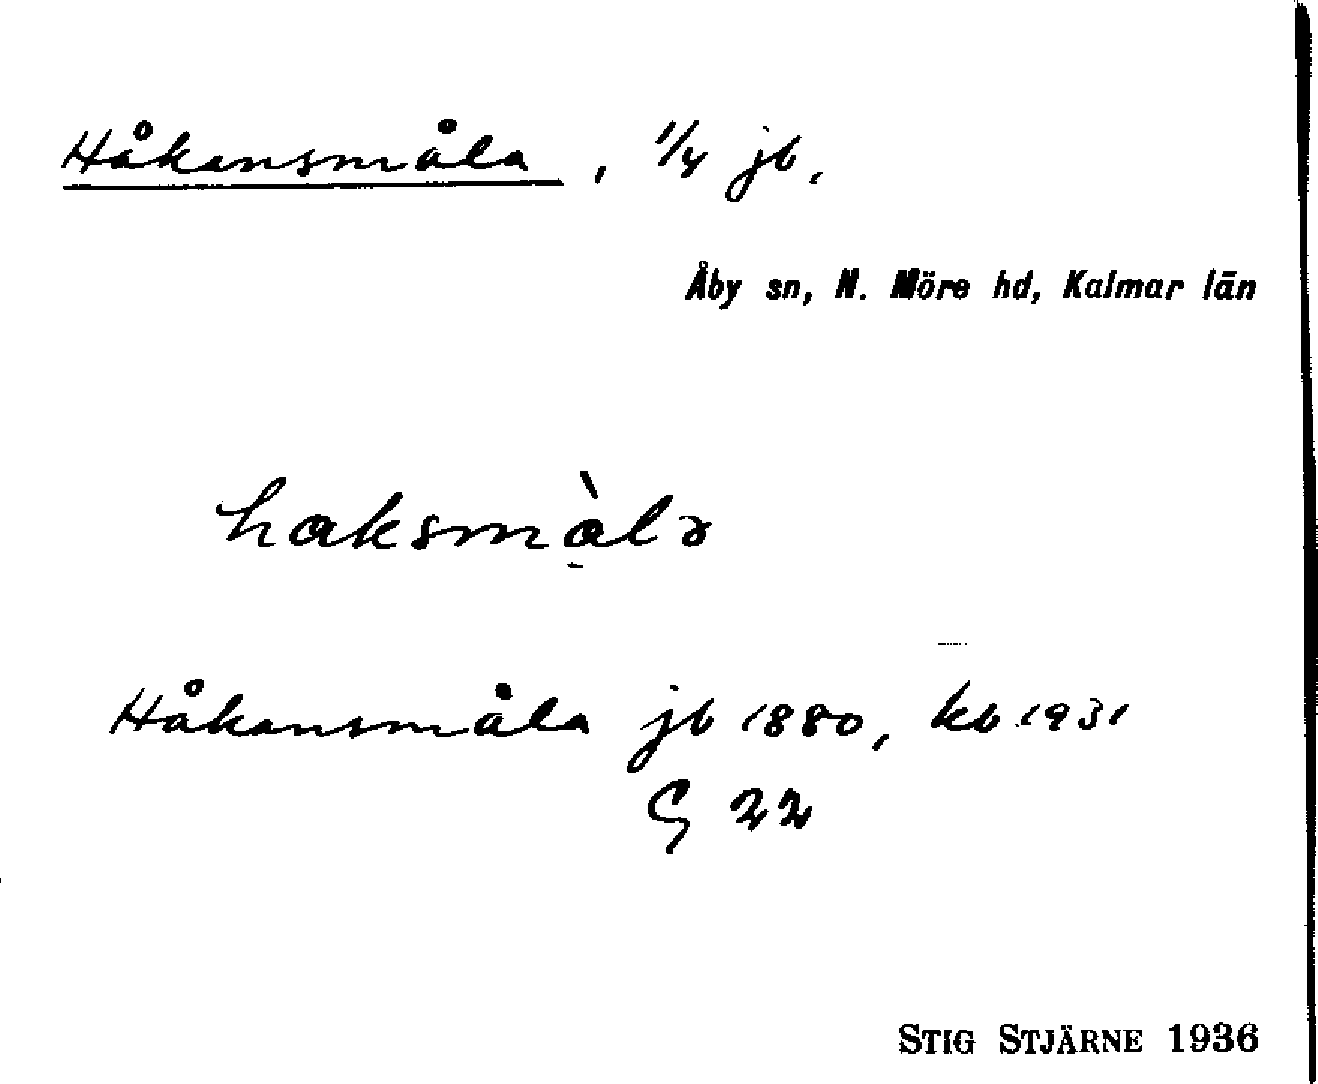 Håkansmåla, 1/4 jb.
Åby sn, N. Möre hd, Kalmar län
haksmàla
Håkansmåla jb 1880, kb 1931
G 22
STIG STJÄRNE 1936